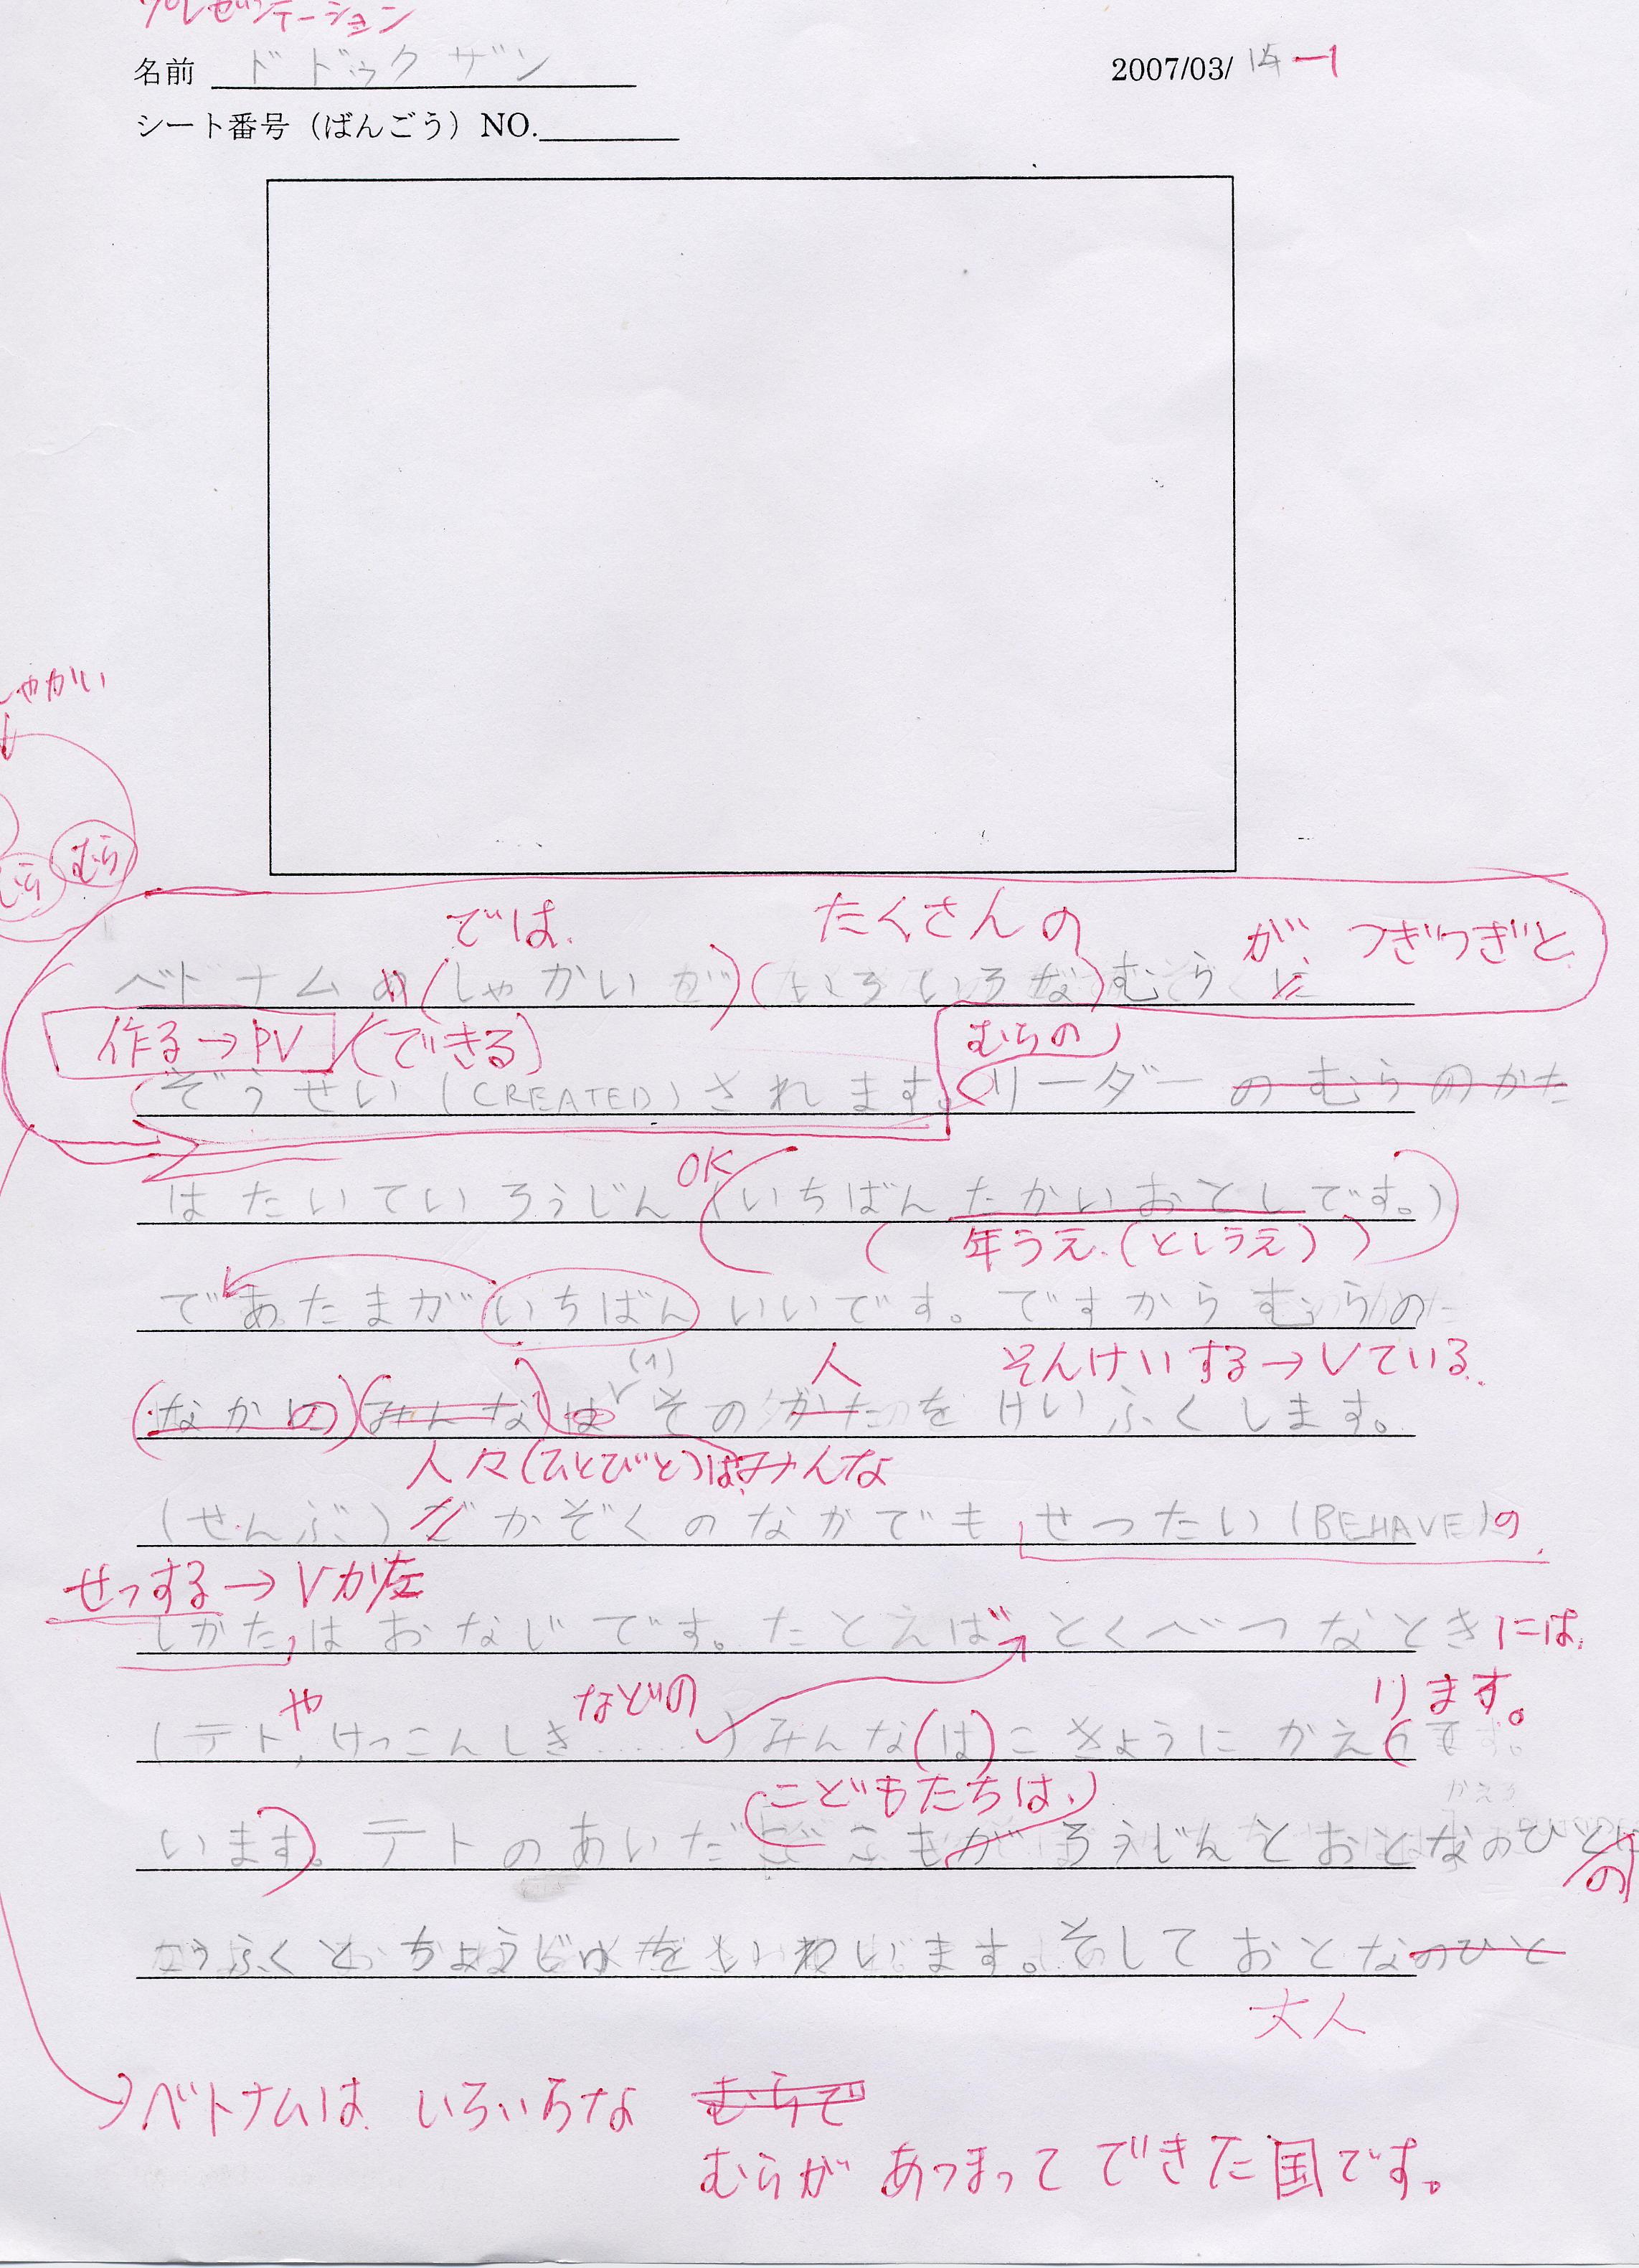 プレゼンテーション
名前 ド ドゥク ザン
2007/03/14-1
シート番号（ばんごう）NO.
しゃかい
むら
むら
では、 たくさんの が、 つぎつぎと
ベトナムの（しゃかいが）（いろいろな）むら に
作る→PV （できる） むらの
ぞうせい（CREATED）されます。リーダーのむらのかた
OK
はたいていろうじん（いちばんたかいおとしです。）
（年うえ.（としうえ））
であたまがいちばんいいです。ですからむらの
(1) 人 そんけいする→Vている
（なかの）（みんな）はそのかたをけいふくします。
人々（ひとびと）はみんな
（せんぶ）だかぞくのなかでもせったい（BEHAVE）の
せっする→Vかた
しかたはおなじです。たとえば、とくべつなときには、
や などの ります。
（テト, けっこんしき……）みんな（は）こきょうにかえって
（こどもたちは、）
かえる
います。テトのあいだ こもがろうじんとおとなのひと
の
こうふくとちょうじゅをいわいます。そしておとなのひと
大人
→ベトナムは いろいろな むらで
むらが あつまって できた国です。